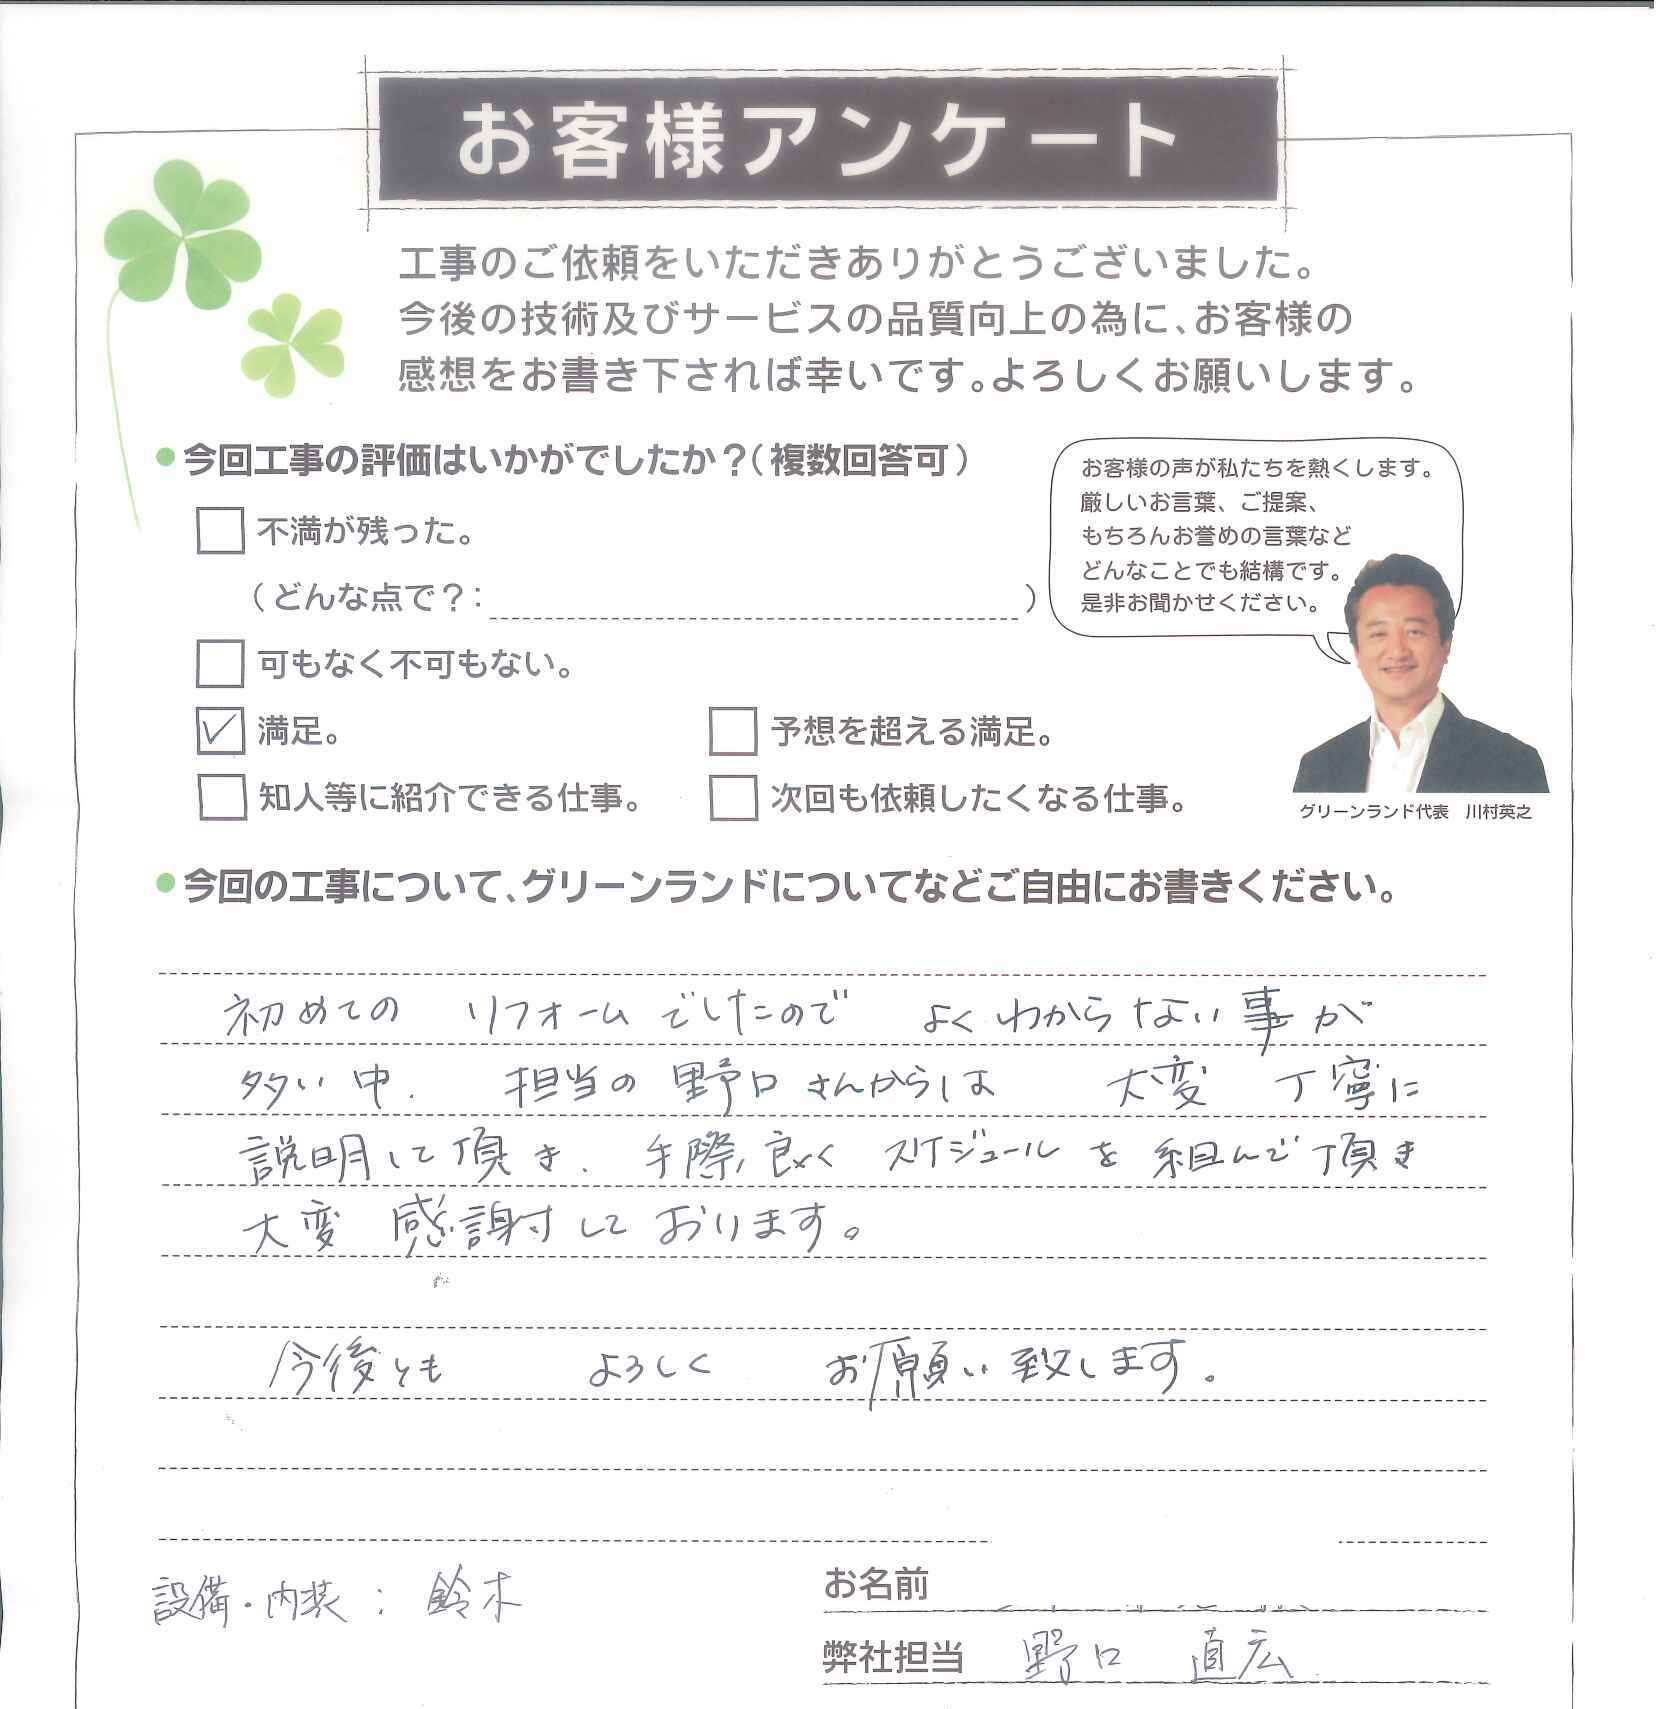 お客様アンケート
工事のご依頼をいただきありがとうございました。
今後の技術及びサービスの品質向上の為に、お客様の
感想をお書き下されば幸いです。よろしくお願いします。
今回工事の評価はいかがでしたか？（複数回答可）
不満が残った。
（どんな点で？：　）
可もなく不可もない。
満足。
予想を超える満足。
知人等に紹介できる仕事。
次回も依頼したくなる仕事。
お客様の声が私たちを熱くします。
厳しいお言葉、ご提案、
もちろんお誉めの言葉など
どんなことでも結構です。
是非お聞かせください。
グリーンランド代表　川村英之
今回の工事について、グリーンランドについてなどご自由にお書きください。
初めての リフォームでしたので よくわからない事が
多い中. 担当の野口さんからは 大変 丁寧に
説明して頂き. 手際良く スケジュールを組んで頂き
大変 感謝しております。
今後とも よろしく お願い致します。
設備・内装：鈴木
お名前
弊社担当 野口 直広